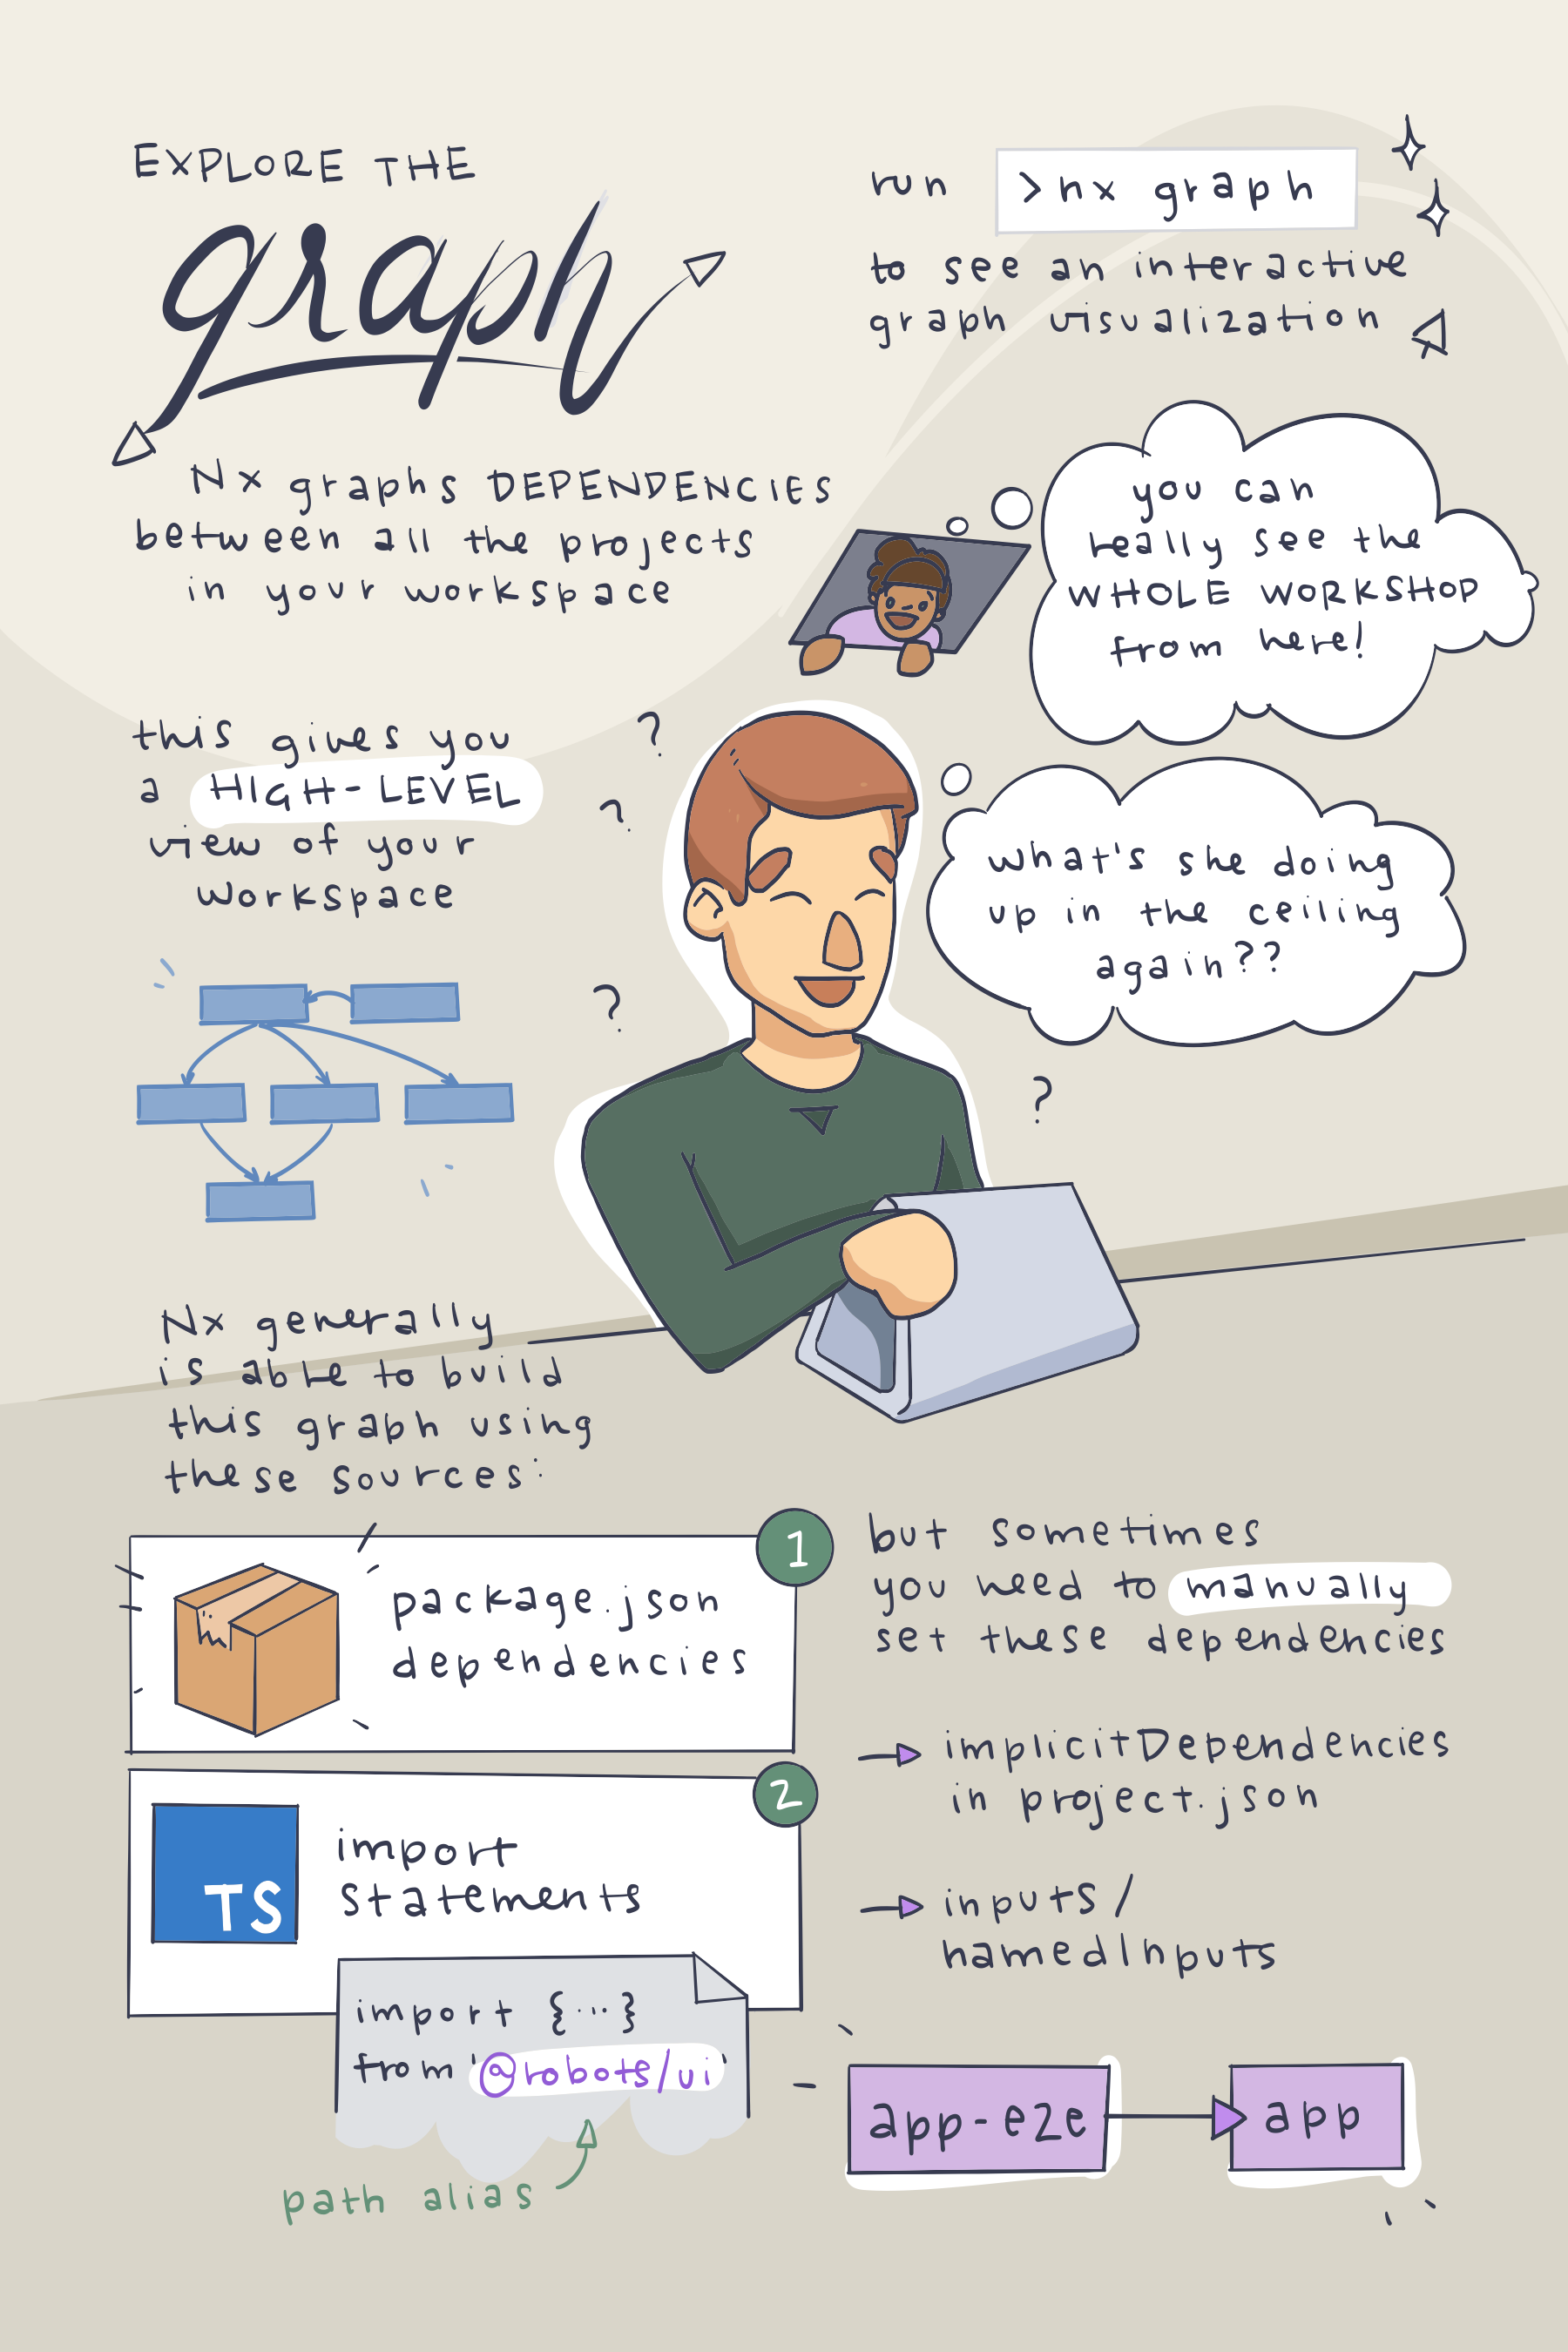 EXPLORE THE
graph
run >nx graph
to see an interactive
graph visualization
Nx graphs DEPENDENCIES
between all the projects
in your workspace
you can
really see the
WHOLE WORKSHOP
from here!
this gives you
a HIGH-LEVEL
view of your
workspace
?
?
?
?
what's she doing
up in the ceiling
again??
Nx generally
is able to build
this graph using
these sources:
1
package.json
dependencies
2
TS
import
statements
import {...}
from '@robots/ui'
path alias
but sometimes
you need to manually
set these dependencies
implicitDependencies
in project.json
inputs/
namedInputs
app-e2e
app